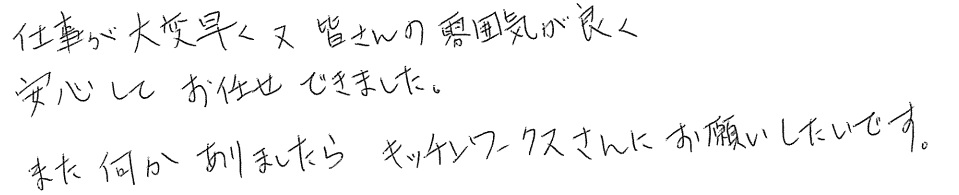 仕事が大変早く又皆さんの雰囲気が良く
安心してお任せできました。
また何かありましたらキッチンワークスさんにお願いしたいです。